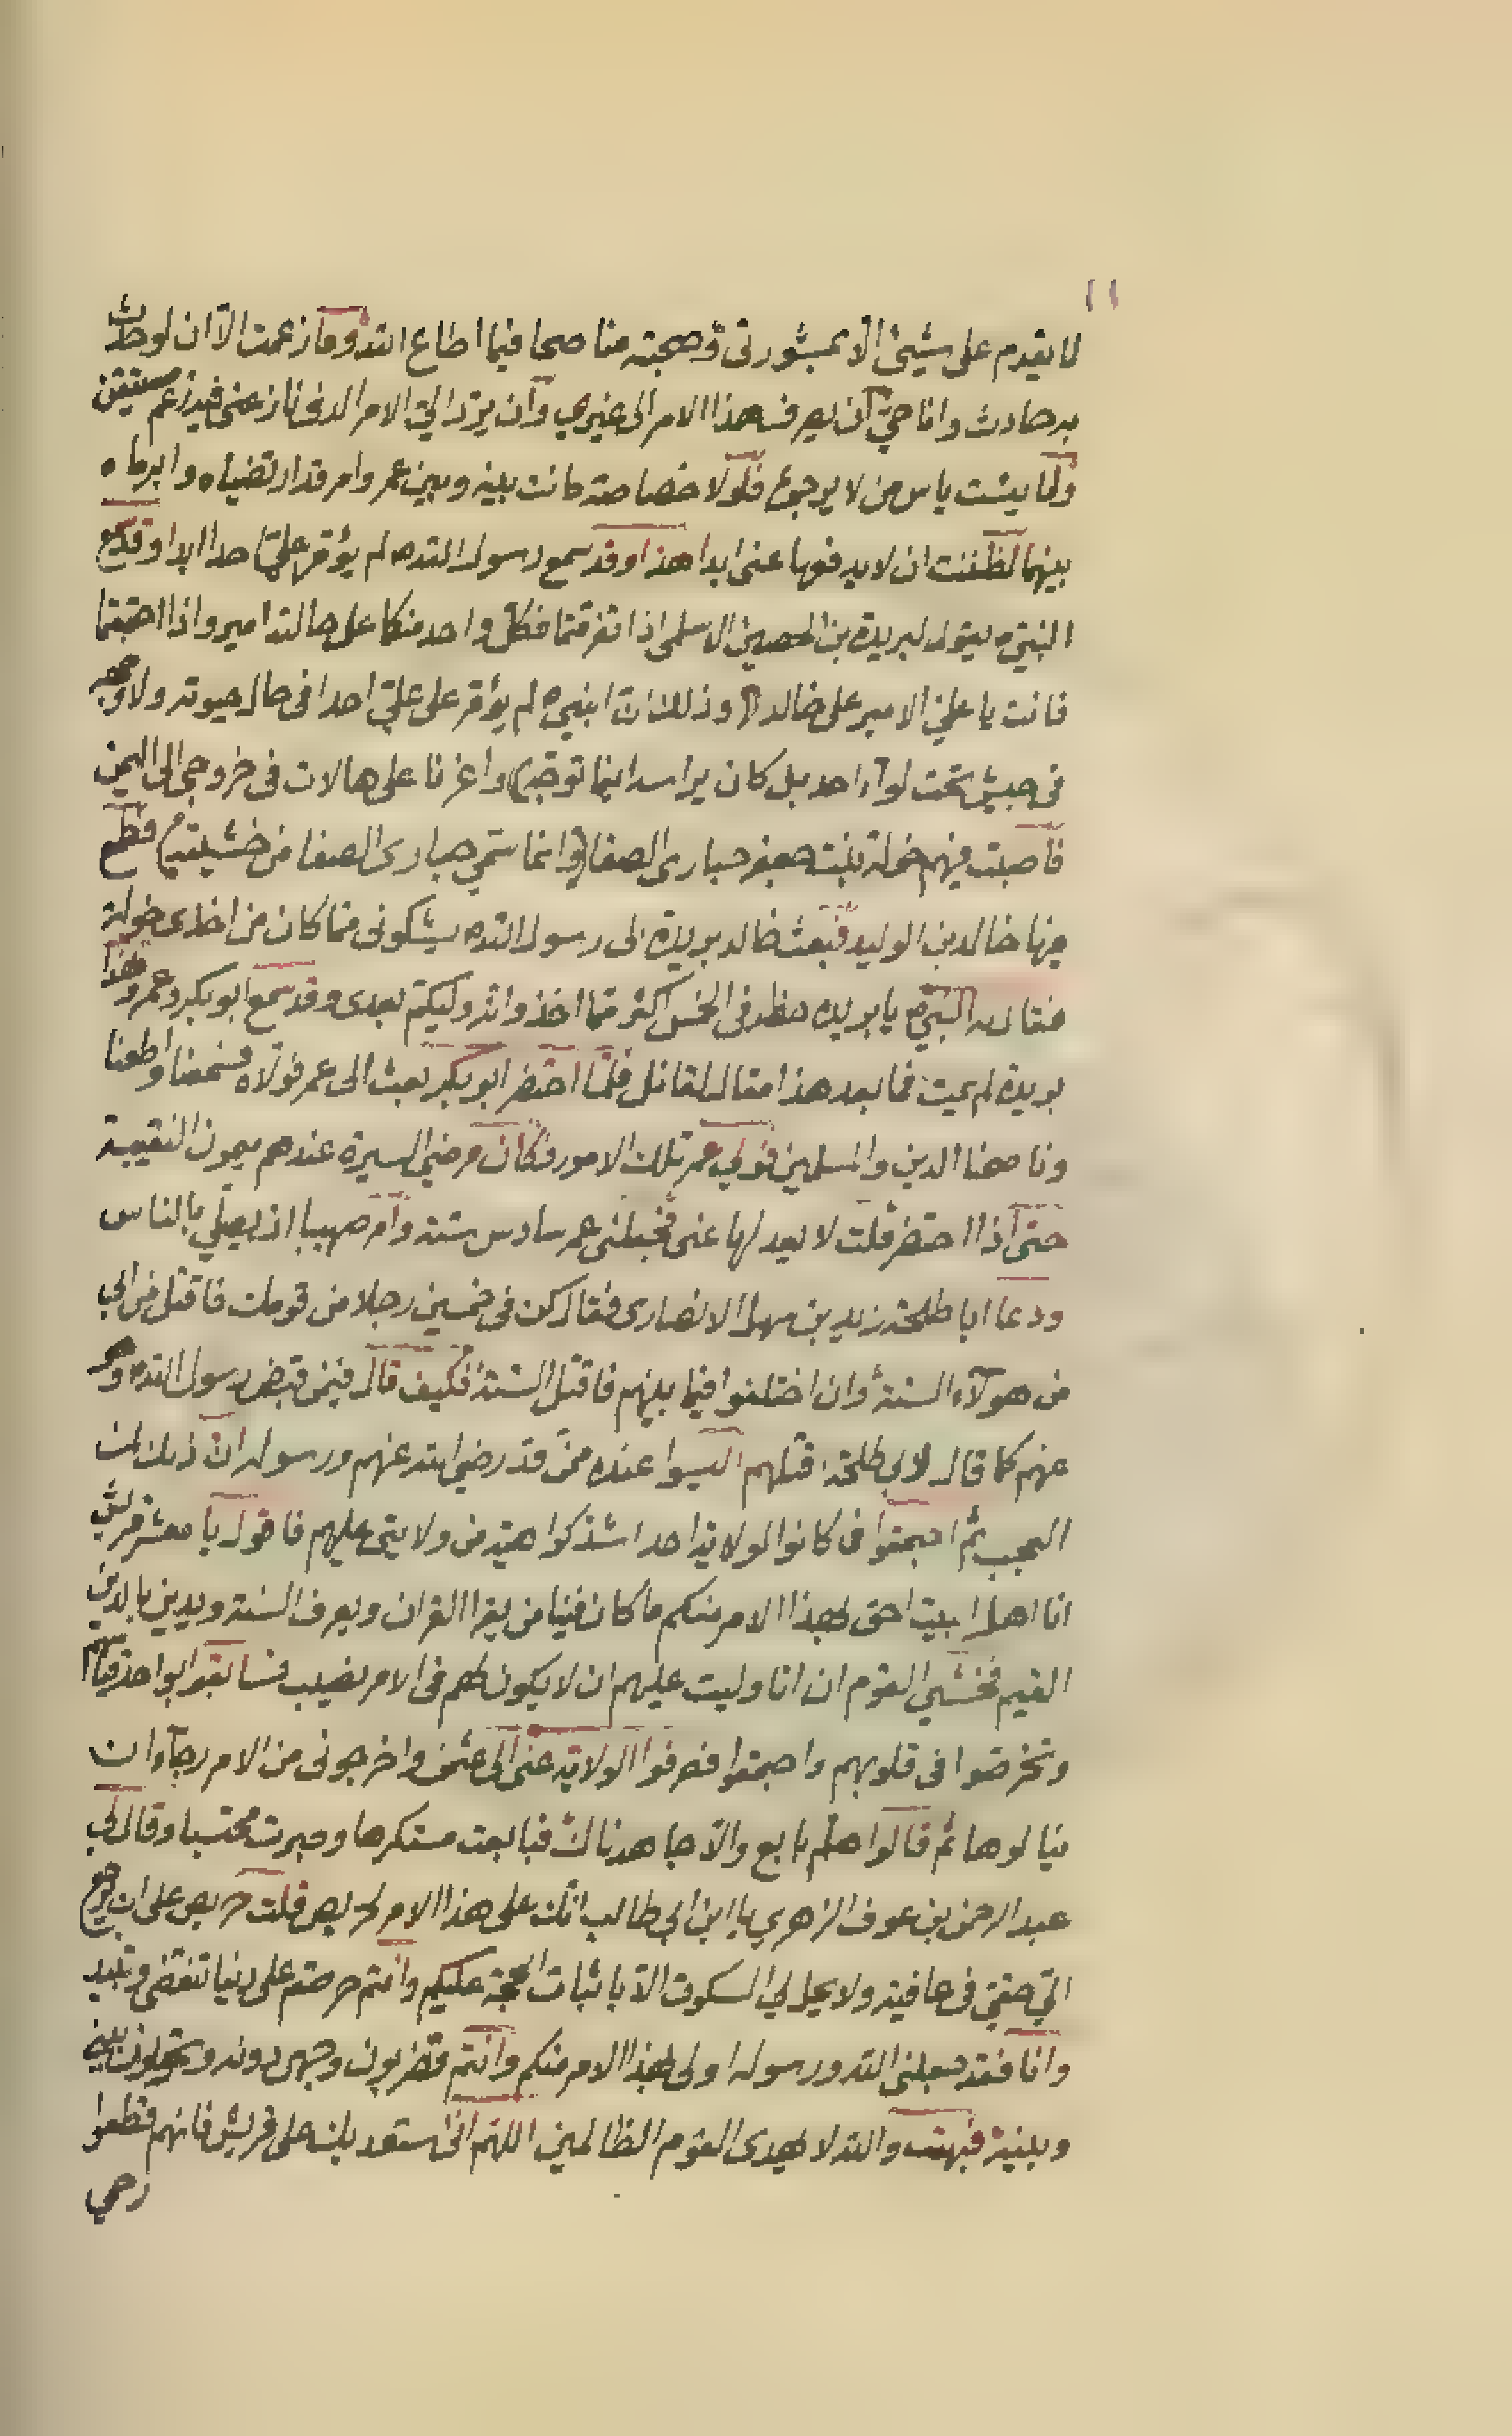 ١١
لا يقدم على شيئ الا بمشورتى وصحبته مناصحا فيما اطاع الله وما زعمت الا ان لو حدث
به حادث وانا حي ان يصرف هذا الامر الى غيري وان يرد الي الامر الذى نازعنى فيه زعم مستيقن
ولا يئست ياس من لا يرجوه فلولا خصاصة كانت بينه وبين عمر وامر قد ارتضياه وابرماه
بينهما لظننت ان لا يدفعها عنى ابدا هذا وقد سمع رسول الله لم يؤمر على احدا ابدا وقد سمع
النبى يقول لبريدة بن الحصين الاسلمى اذا تفرقتما فكل واحد منكما على حالته امير واذا اجتمعتما
فانت يا على الامير على خالد وذلك ان النبى لم يؤمر على على احدا فى حال حيوته ولا وجهه
فى جيش تحت لوآء احد بل كان يراسه اينما توجه واغرنا على هالات فى خروجى الى اليمن
فاصبت فيهم خولة بنت جعفر جبارى الصفا وانما سمى جبارى الصفا من خشيته فطمع
فيها خالد بن الوليد فبعث خالد بريدة الى رسول الله يشكونى مما كان من اخذى خولة
فقال له النبى يا بريده حظه فى الخمس اكثر مما اخذ وانه وليكم بعدى وقد سمع ابو بكر وعمر وهذا
بريدة لم يمت فما بعد هذا مقال لقائل فلما احتضر ابو بكر بعث الى عمر فولاه فسمعنا واطعنا
وناصحنا الدين والمسلمين فولى عمر تلك الامور فكان مرضى السيرة عندهم ميمون النقيبة
حتى اذا احتضر قلت لا يعدلها عنى فجعلنى عمر سادس ستة وامر صهيبا ان يصلي بالناس
ودعا ابا طلحة زيد بن سهل الانصارى فقال كن فى خمسين رجلا من قومك فاقتل من ابى
من هولآء الستة وان اختلفوا فيما بينهم فاقتل الستة فكيف قال فيمن قبض رسول الله وهو
عنهم كما قال لابى طلحة اقتلهم اليسوا عنده ممن قد رضي الله عنهم ورسوله ان ذلك لمن
العجب ثم اجتمعوا فما كانوا لولاية احد اشد كراهية من ولايتى عليهم فاقول يا معشر قريش
انا اهل بيت احق بهذا الامر منكم ما كان فينا من يقرا القران ويعرف السنة ويدين بالدين
القيم فخشى القوم ان انا وليت عليهم ان لا يكون لهم فى الامر نصيب فبايعوا
فى قلوبهم واجمعوا فصرفوا الولاية عنى الى عثمن واخرجونى من الامر رجآء ان
ينالوها ثم قالوا هلم بايع والا جاهدناك فبايعت مستكرها وصبرت محتسبا وقال لي
عبد الرحمن بن عوف الزهري يا ابن ابي طالب انك على هذا الامر لحريص قلت حريص على ان يرجع
الي حقى فى عافية ولا يحل لي السكوت الا باثبات الحجة عليكم وانتم حرصتم على دنيا تنقضى وتبيد
وانا فقد جعلنى الله ورسوله اولى بهذا الامر منكم وانتم تضربون وجهى دونه وتحولون بينى
وبينه فبهتت والله لا يهدى القوم الظالمين اللهم انى استعديك على قريش فانهم قطعوا
رحمي